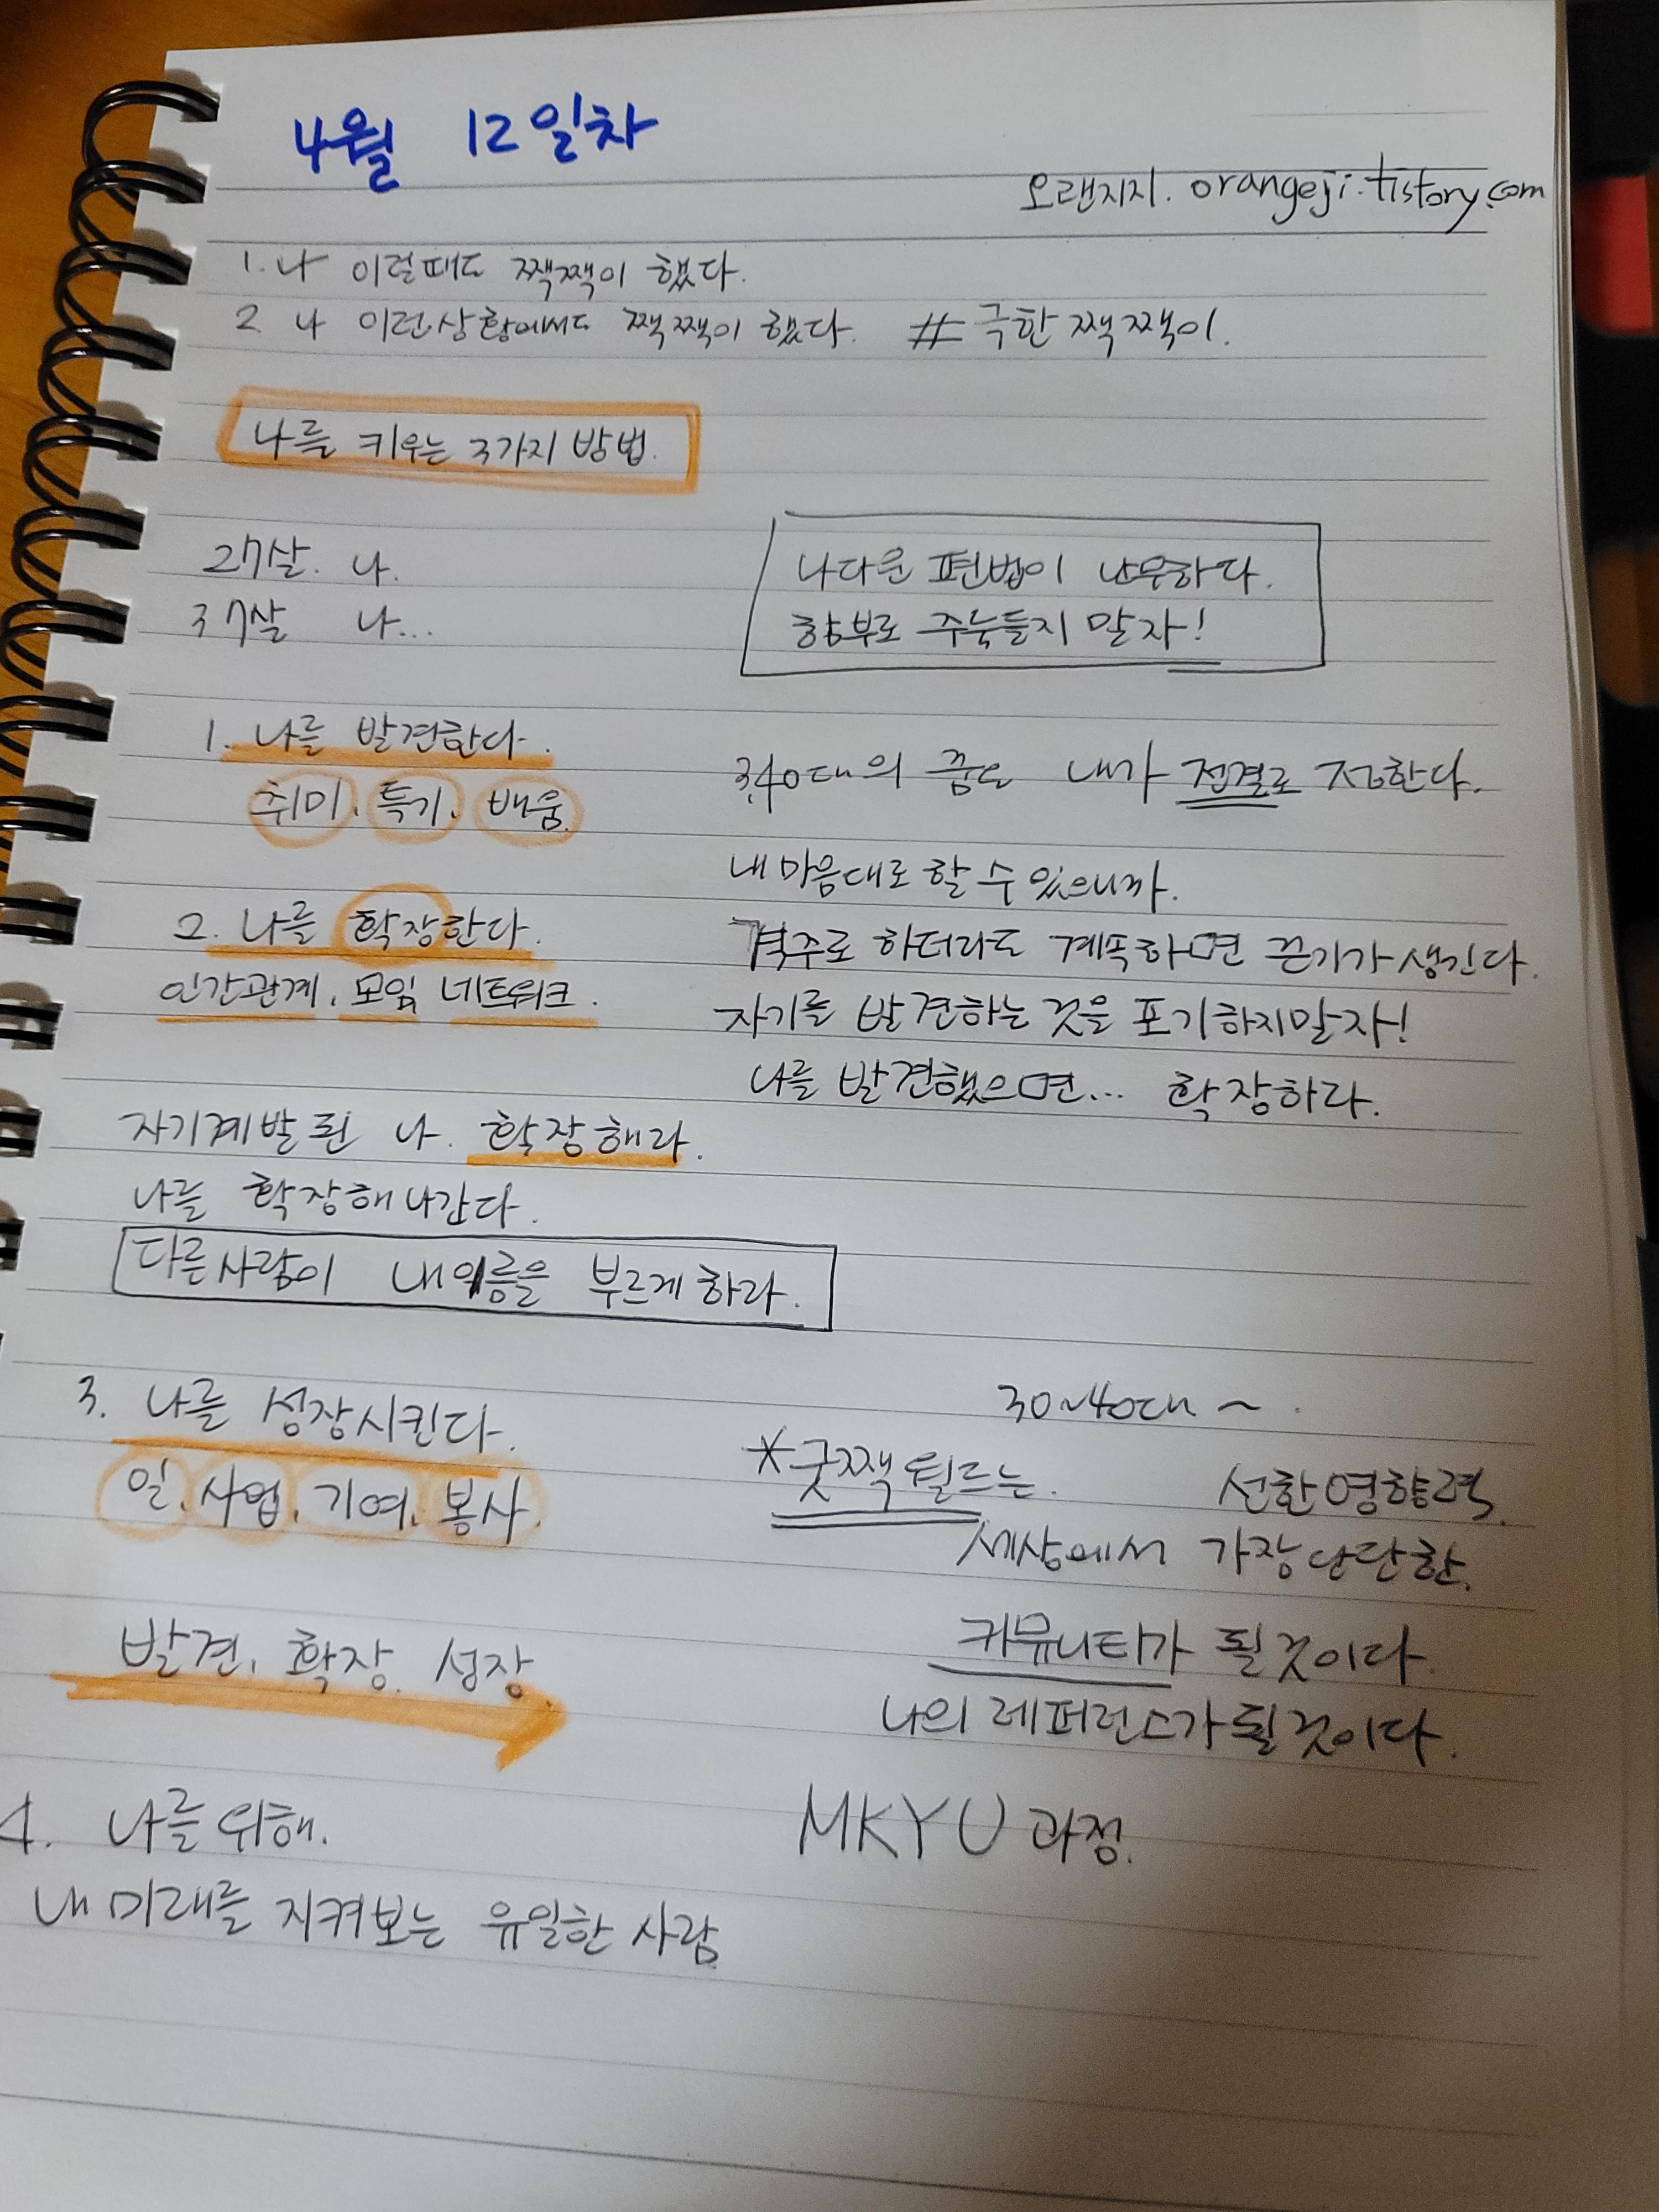 4월 12일차
오랜지지. orangeji.tistory.com
1. 나 이럴때도 짹짹이 했다.
2 나 이런상황에서도 짹짹이 했다. #극한 짹짹이.
나를 키우는 3가지 방법.
27살. 나.
37살 나...
나다운 편법이 난무하다.
함부로 주눅들지 말자!
1. 나를 발견한다.
취미. 특기. 배움.
3,40대의 꿈은 내가 전결로 정한다.
내 마음대로 할 수 있으니까.
2. 나를 확장한다.
인간관계. 모임 네트워크.
격주로 하더라도 계속하면 끈기가 생긴다.
자기를 발견하는 것을 포기하지말자!
나를 발견했으면... 확장하라.
자기계발 된 나. 확장해라.
나를 확장해 나간다.
다른사람이 내이름을 부르게 하라.
3. 나를 성장시킨다.
일. 사업. 기여. 봉사.
30~40대~.
*굿짹월드는. 선한영향력.
세상에서 가장 단단한.
커뮤니티가 될 것이다.
나의 레퍼런스가 될 것이다.
발견. 확장. 성장.
4. 나를 위해.
내 미래를 지켜보는 유일한 사람
MKYU 과정.